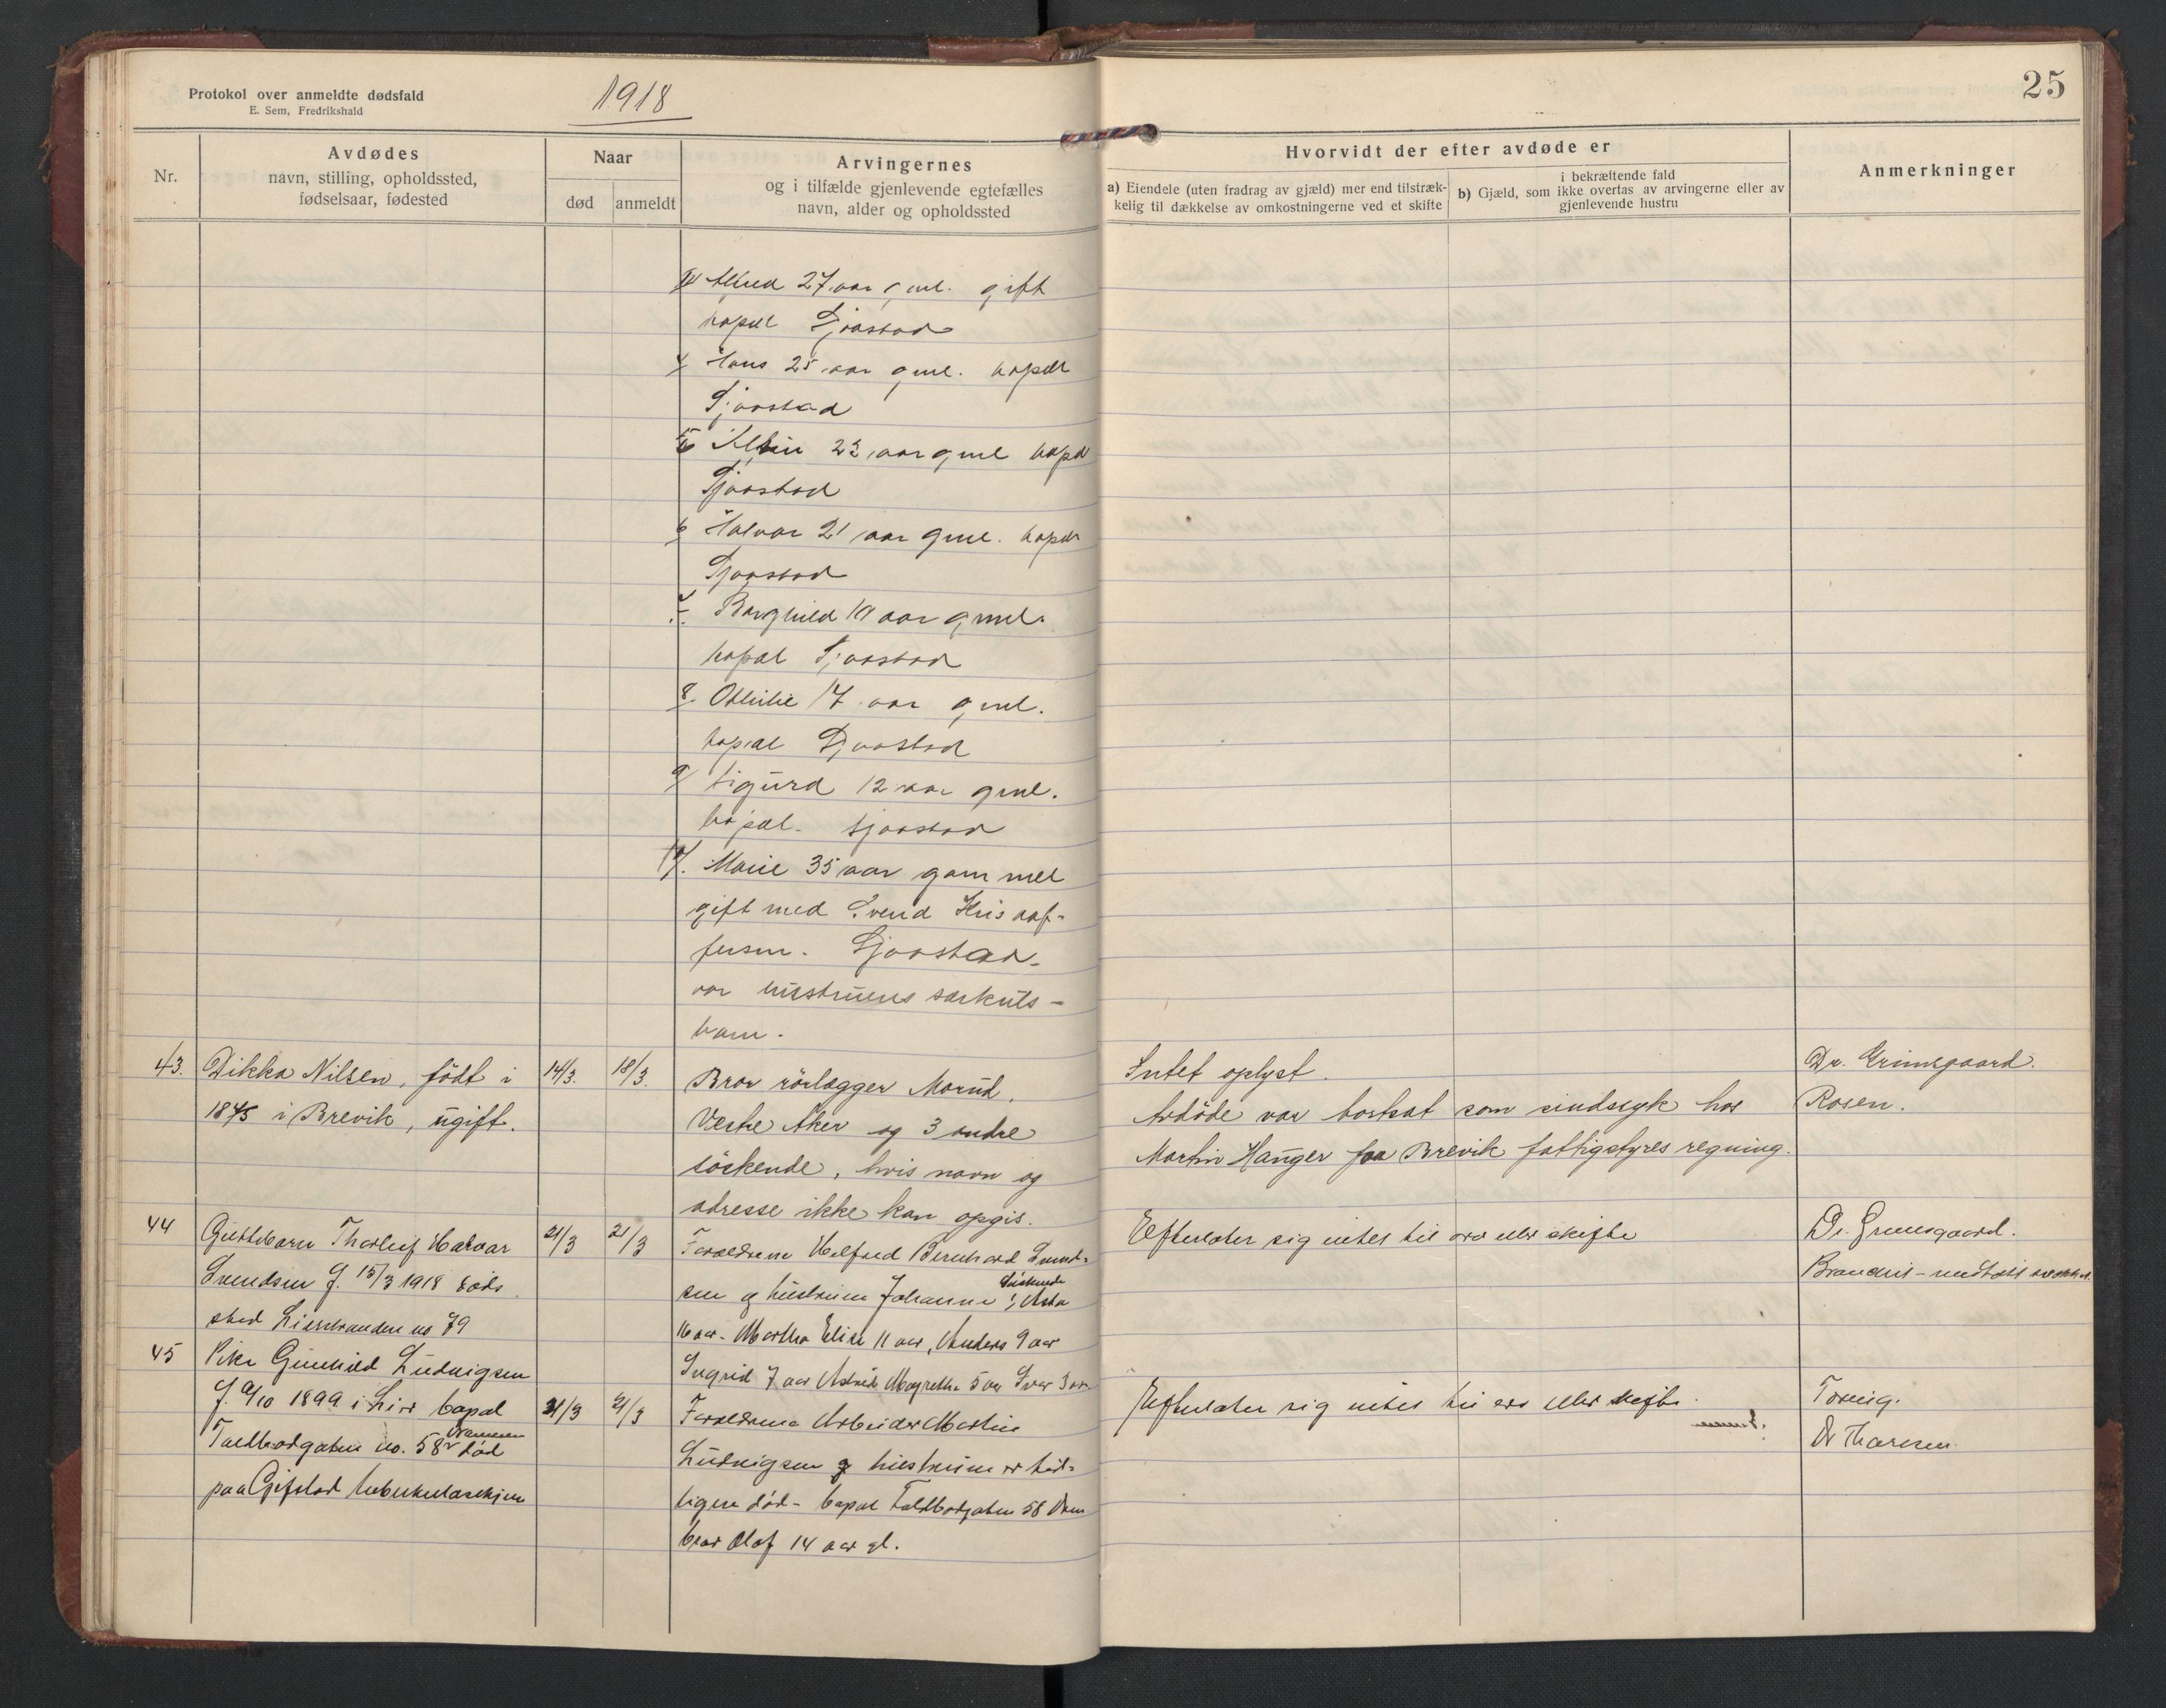 Protokol over anmeldte dødsfald
E. Sem, Fredrikshald
1918
25
Nr.
Avdødes
navn, stilling, opholdssted,
fødselsaar, fødested
Naar
død
anmeldt
Arvingernes
og i tilfælde gjenlevende egtefælles
navn, alder og opholdssted
Hvorvidt der efter avdøde er
a) Eiendele (uten fradrag av gjæld) mer end tilstræk-
kelig til dækkelse av omkostningerne ved et skifte
i bekræftende fald
b) Gjæld, som ikke overtas av arvingerne eller av
gjenlevende hustru
Anmerkninger
27 aar gml. gift
bopæl Gjøastad
4/ Hans 25 aar gml. bopæl
Gjøastad
5 23 aar gml bopæl
Gjøastad
6 Halvar 21 aar gml. bopæl
Gjøastad
7. Borghild 19 aar gml.
bopæl Gjøastad
8. Othilie 17 aar gml.
bopæl Gjøastad
9/ Sigurd 12 aar gml.
bopæl. Gjøastad
10/. Marie 35 aar gammel
gift med Svend Kristof-
fersen. Gjøastad.
var hustruens særkuls-
barn.
43. Dikka Nilsen, født i
1845 i Brevik, ugift.
14/3. 18/3.
Bror rørlægger Morud,
Vestre Aker og 3 andre
søskende, hvis navn og
adresse ikke kan opgis.
Intet oplyst.
Avdøde var bortsat som sindssyk hos
Martin Hanger for Brevik fattigstyres regning.
Dr. Grimsgaard.
Rosen.
44 Guttebarn Thorleif Halvar
Svendsen f. 15/3 1918 døds
sted Lierstranden no 79
21/3 21/3
Forældrene Helfred Bernhard Svend-
sen og hustruen Johanne Søskende: Asta
16 aar. Martha Elise 11 aar, Anders 9 aar
Ingrid 7 aar Astrid Magrethe 5 aar Ivar 3 aar
Efterlater sig intet til arv eller skifte
Dr. Grimsgaard.
45 Pike Gunhild Ludvigsen
f. 9/10 1899 i Lier bopæl
Toldbodgaten no. 58 Drammen død
paa Gifstad tuberkulosehjem
21/3 21/3
Forældrene Arbeider Martin
Ludvigsen og hustruen er tid-
ligere død - bopæl Toldbodgaten 58 Dram
bror Olaf 14 aar gl.
Efterlater sig intet til arv eller skifte.
Tørning.
Dr Thoresen.